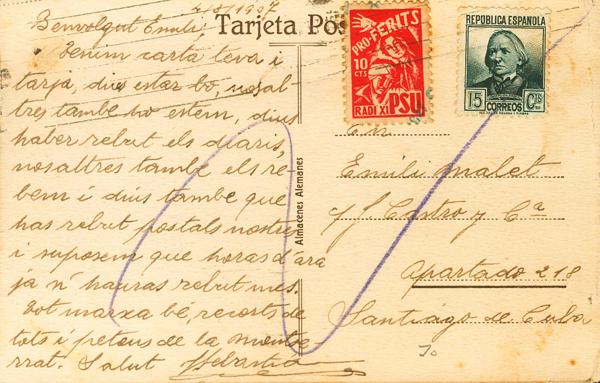 4/8/1937
Benvolgut Emili,
Tenim carta teva i
tarja, dius estar bo, nosal
tres també ho estem, dius
haber rebut els diaris,
nosaltres també els re-
bem i dius també que
has rebut postals nostres
i suposem que horas d'ara
ja n' hauras rebut mes.
Tot marxa bé, records de
tots i petons de la Montse
rrat. Salut Sebastià
Tarjeta Pos
PRO-FERITS
10
CTS
RADI XI PSU
REPUBLICA ESPAÑOLA
15 CORREOS Cts
Almacenes Alemanes
En
Emili Malet
s/ Castro y Cª
Apartado 218
Santiago de Cuba